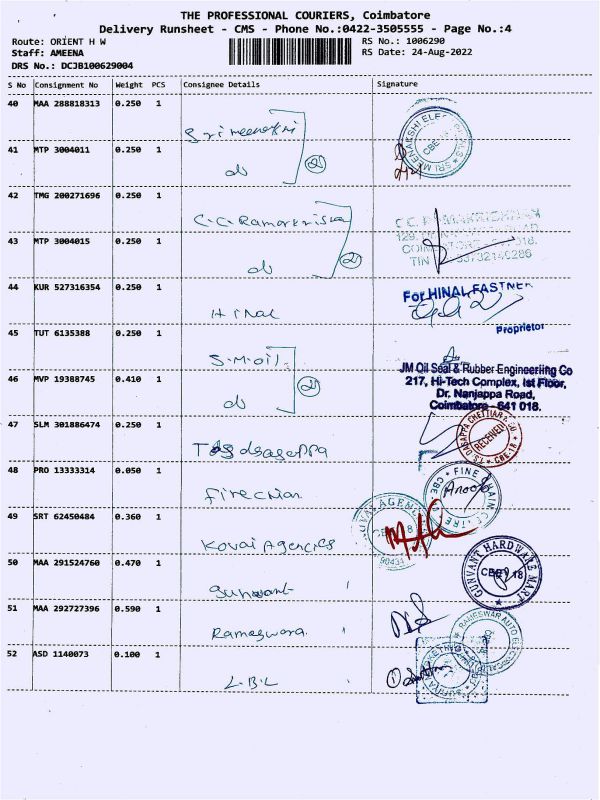 THE PROFESSIONAL COURIERS, Coimbatore
Delivery Runsheet - CMS - Phone No.:0422-3505555 - Page No.:4
Route: ORIENT H W
RS No.: 1006290
Staff: AMEENA
RS Date: 24-Aug-2022
DRS No.: DCJB100629004
S No Consignment No Weight PCS Consignee Details Signature
40 MAA 288818313 0.250 1
Srimeenakshi
41 MTP 3004011 0.250 1
do 2
SRI MEENAKSHI CBE-18
42 TMG 200271696 0.250 1
C.C. Ramakrishna
43 MTP 3004015 0.250 1
do 2
44 KUR 527316354 0.250 1
Hinal
For HINAL FASTNER
Proprietor
45 TUT 6135388 0.250 1
S.M.oil.
46 MVP 19388745 0.410 1
do 2
JM Oil Seal & Rubber Engineeriing Co
217, Hi-Tech Complex, Ist Floor,
Dr. Nanjappa Road,
Coimbatore - 641 018.
47 SLM 301886474 0.250 1
RECEIVED CBE-18
48 PRO 13333314 0.050 1
Firechian
FINE CHAIN CENTRE
49 SRT 62450484 0.360 1
Kovai Agencies
50 MAA 291524760 0.470 1
Gunwant
GUNVANT HARDWARE MART
51 MAA 292727396 0.590 1
Rameswara
52 ASD 1140073 0.100 1
L.B.L